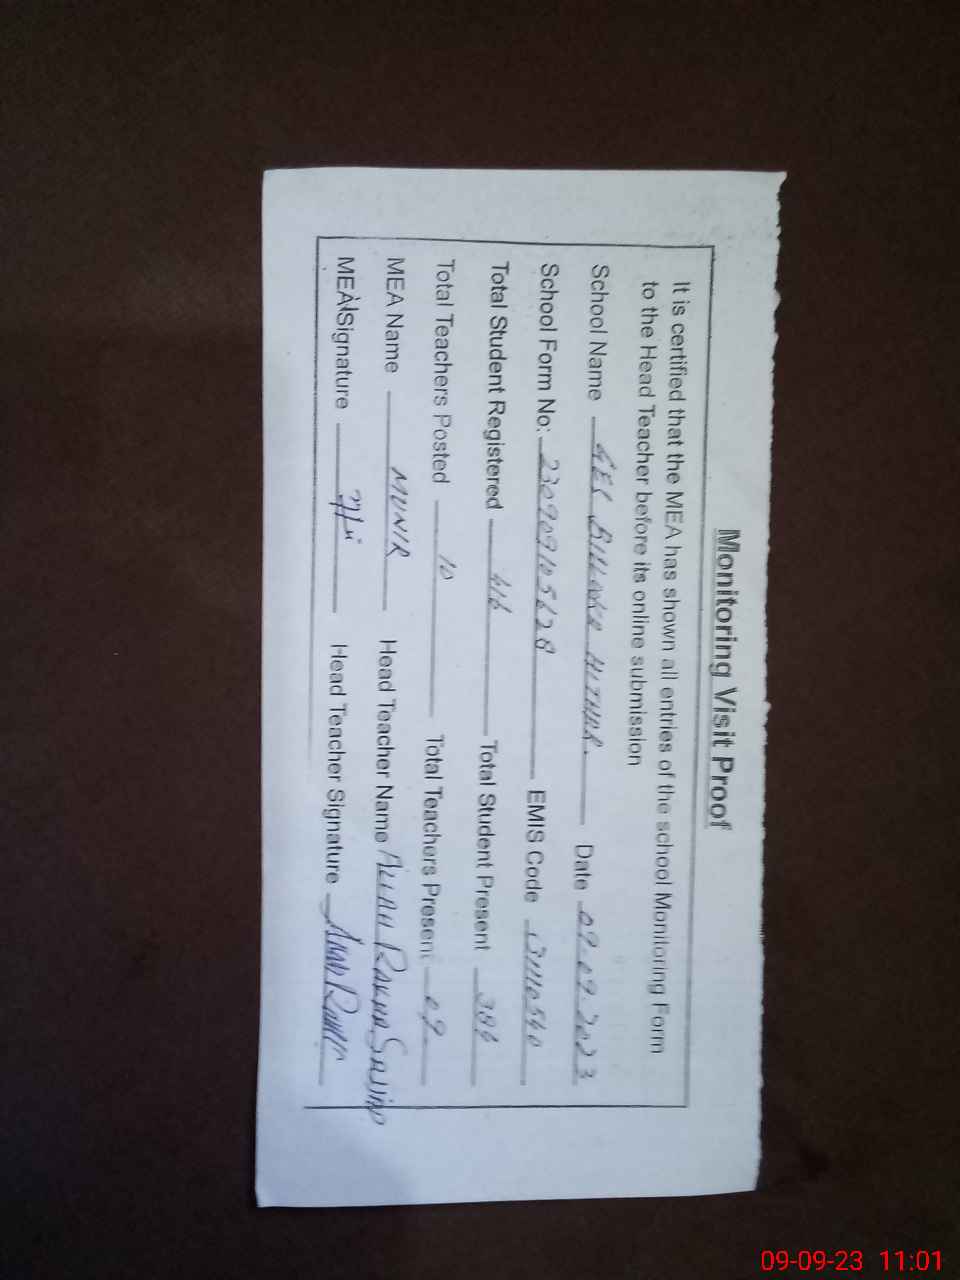 Monitoring Visit Proof
It is certified that the MEA has shown all entries of the school Monitoring Form
to the Head Teacher before its online submission
School Name GES Date 09.09.2023
School Form No: 230909105628 EMIS Code 31110540
Total Student Registered 416 Total Student Present
Total Teachers Posted 10 Total Teachers Present 09
MEA Name MUNIR Head Teacher Name ALLAH RAKHA SAJJAD
MEA Signature Head Teacher Signature
09-09-23 11:01